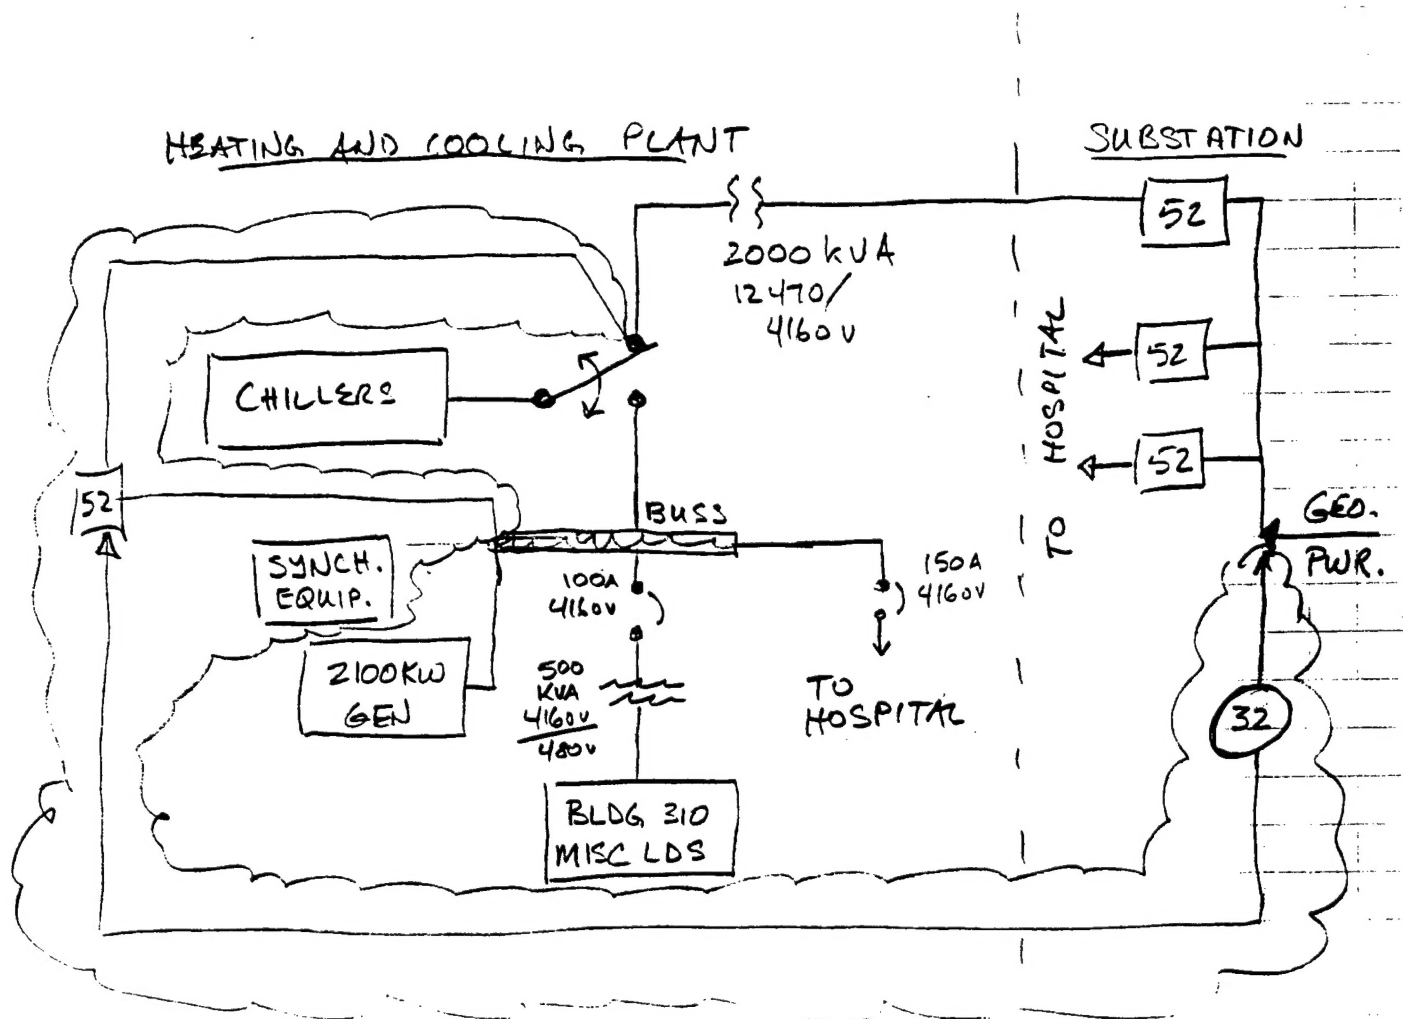 HEATING AND COOLING PLANT
SUBSTATION
52
2000 KVA
12470/
4160V
TO HOSPITAL
52
CHILLERS
52
52
BUSS
GEO.
PWR.
SYNCH.
EQUIP.
100A
4160V
150A
4160V
2100KW
GEN
500
KVA
4160V
480V
TO
HOSPITAL
32
BLDG 310
MISC LDS